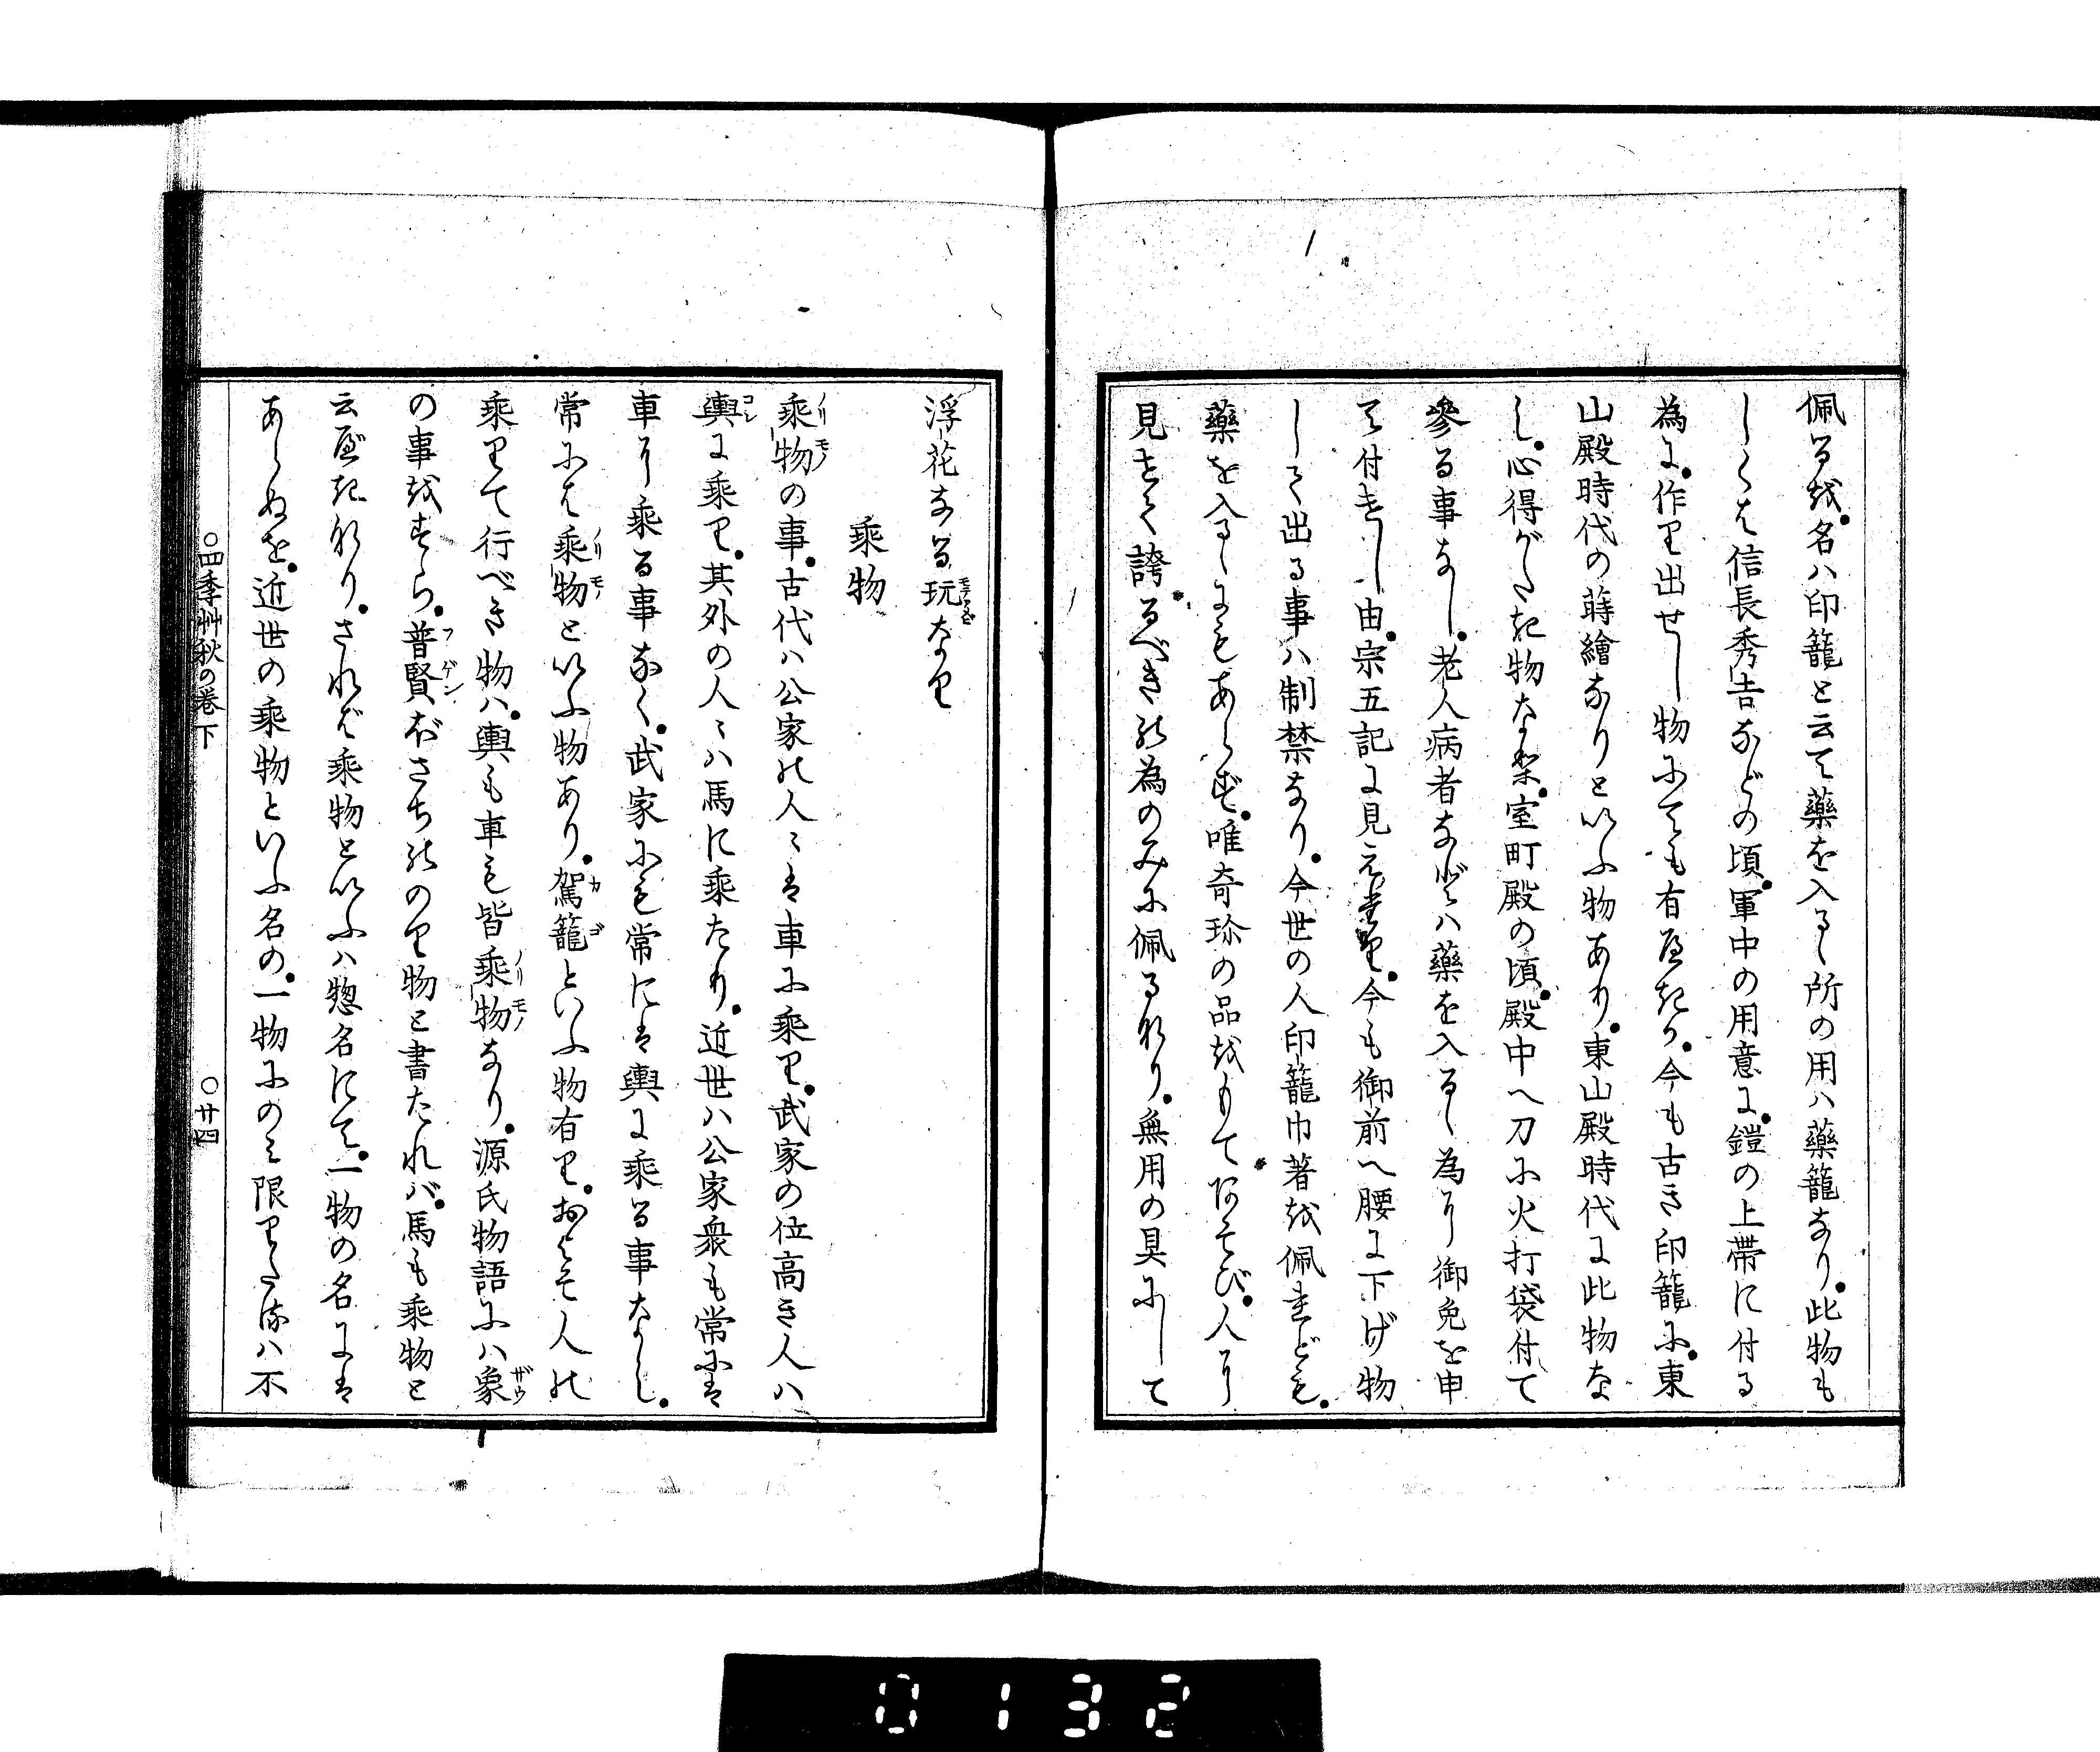 佩るを。名ハ印籠と云て藥を入るゝ所の用ハ藥籠なり。此物も
しくは信長秀吉などの頃。軍中の用意に。鎧の上帯に付る
為に。作り出せし物にても有べきか。今も古き印籠に。東
山殿時代の蒔繪なりといふ物あり。東山殿時代に此物な
し。心得がたき物なり。室町殿の頃。殿中へ刀に火打袋付て
參る事なし。老人病者などハ藥を入るゝ為に御免を申
て付きし由。宗五記に見えたり。今も御前へ腰に下げ物
して出る事ハ制禁なり。今世の人印籠巾著を佩れども。
藥を入るゝにもあらず。唯奇珍の品をもてあそび。人に
見せて誇るべき為のみに佩るなり。無用の具にして
浮花なる玩なり
乘物
乘物の事。古代ハ公家の人〻は車に乘り。武家の位高き人ハ
輿に乘り。其外の人〻ハ馬に乘たり。近世ハ公家衆も常には
車に乘る事なく。武家にも常には輿に乘る事なし。
常には乘物といふ物あり。駕籠といふ物有り。およそ人の
乘りて行べき物ハ。輿も車も皆乘物なり。源氏物語にハ象
の事をすら。普賢ぼさちののり物と書たれバ。馬も乘物と
云べきなり。されば乘物といふハ惣名にて。一物の名には
あらぬを。近世の乘物といふ名の。一物にのミ限りたるハ不
○四季艸秋の巻下
○廿四
0132